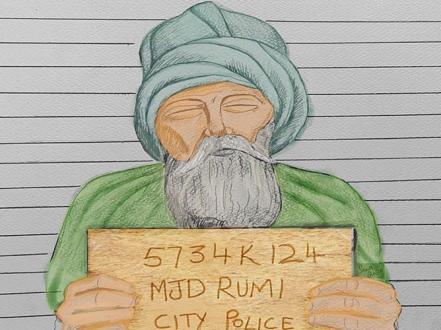 5734K124
MJD RUMI
CITY POLICE